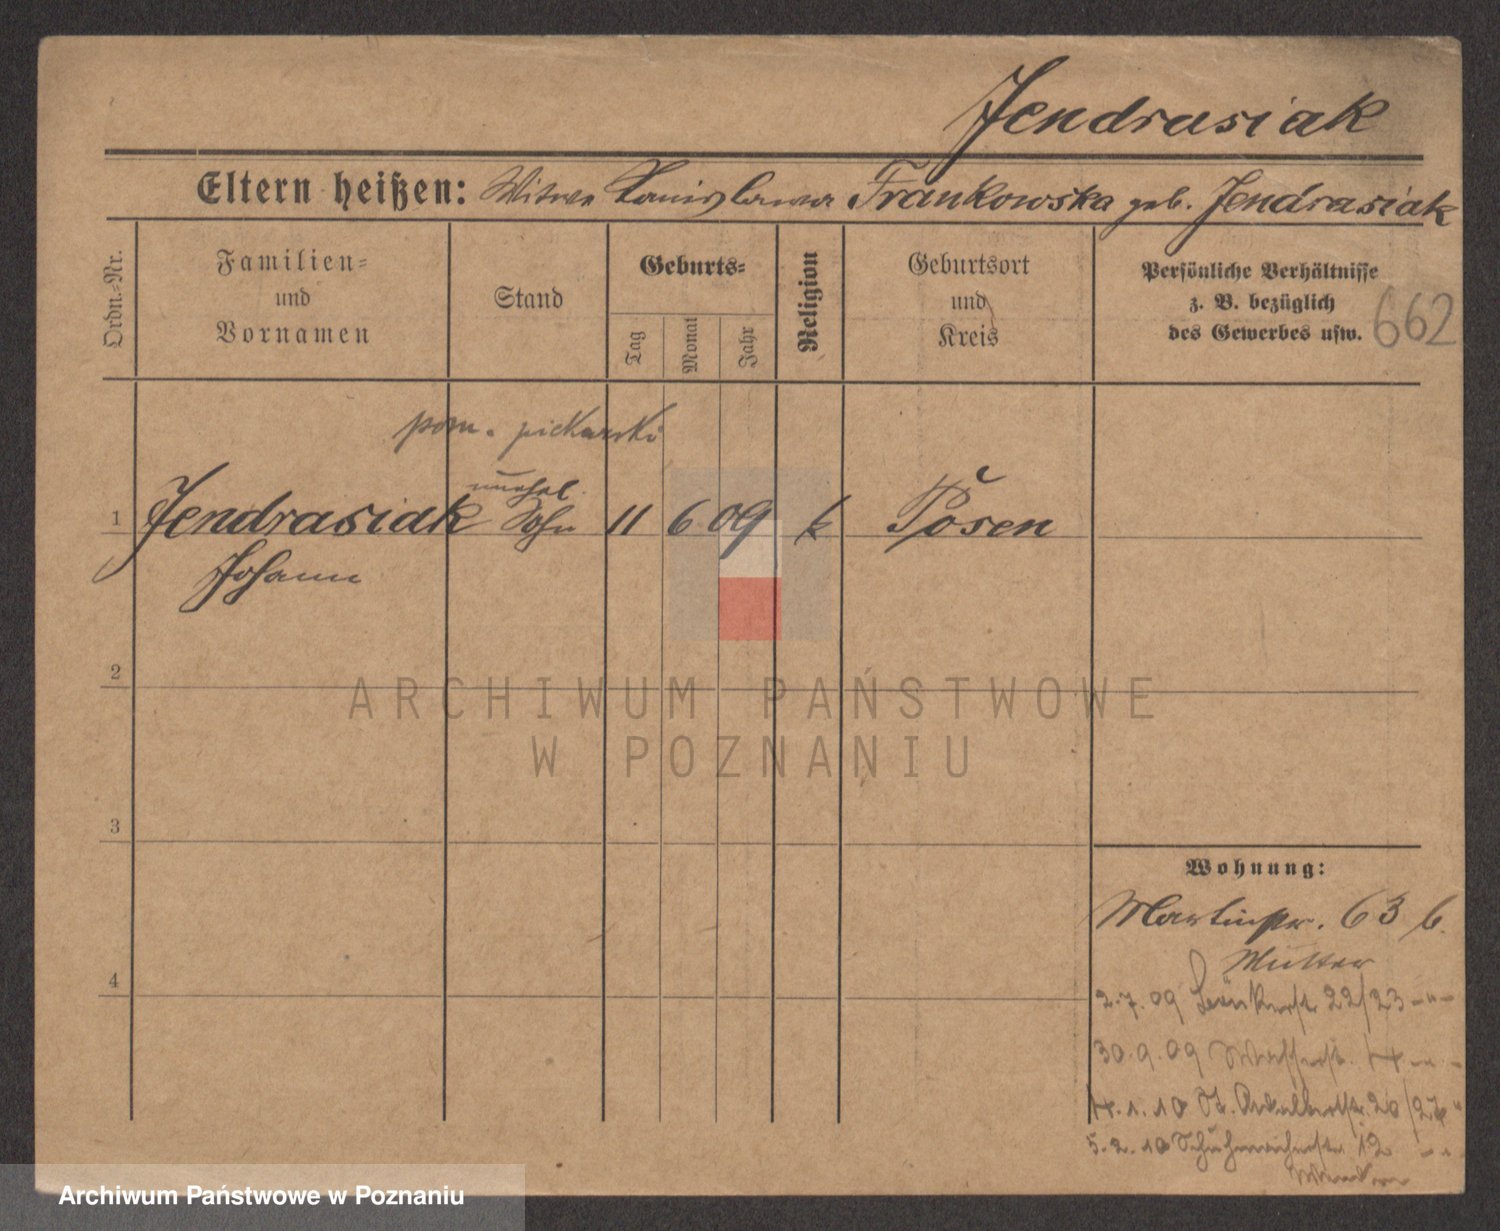 Jendrasiak
Eltern heißen: Witwe Stanislawa Frankowska geb. Jendrasiak
Ordn.=Nr.
Familien=
und
Vornamen
Stand
Geburts=
Tag
Monat
Jahr
Religion
Geburtsort
und
Kreis
Persönliche Verhältnisse
z. B. bezüglich
des Gewerbes usw.
662
pom. piekarski
unehel.
1 Jendrasiak Sohn 11 6 09 k Posen
Johann
2
ARCHIWUM PAŃSTWOWE
W POZNANIU
3
Wohnung:
Martinstr. 63 b.
Mutter
4
2.7.09 22/23 -"-
30.9.09 Wasserstr.
4.1.10 St. Adalbertstr. 26/27 "
5.2.10 Schuhmacherstr. 12
Archiwum Państwowe w Poznaniu